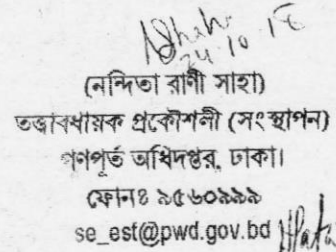 24.10.18
(নন্দিতা রাণী সাহা)
তত্ত্বাবধায়ক প্রকৌশলী (সংস্থাপন)
গণপূর্ত অধিদপ্তর, ঢাকা।
ফোনঃ ৯৫৬০৯৯৯
se_est@pwd.gov.bd